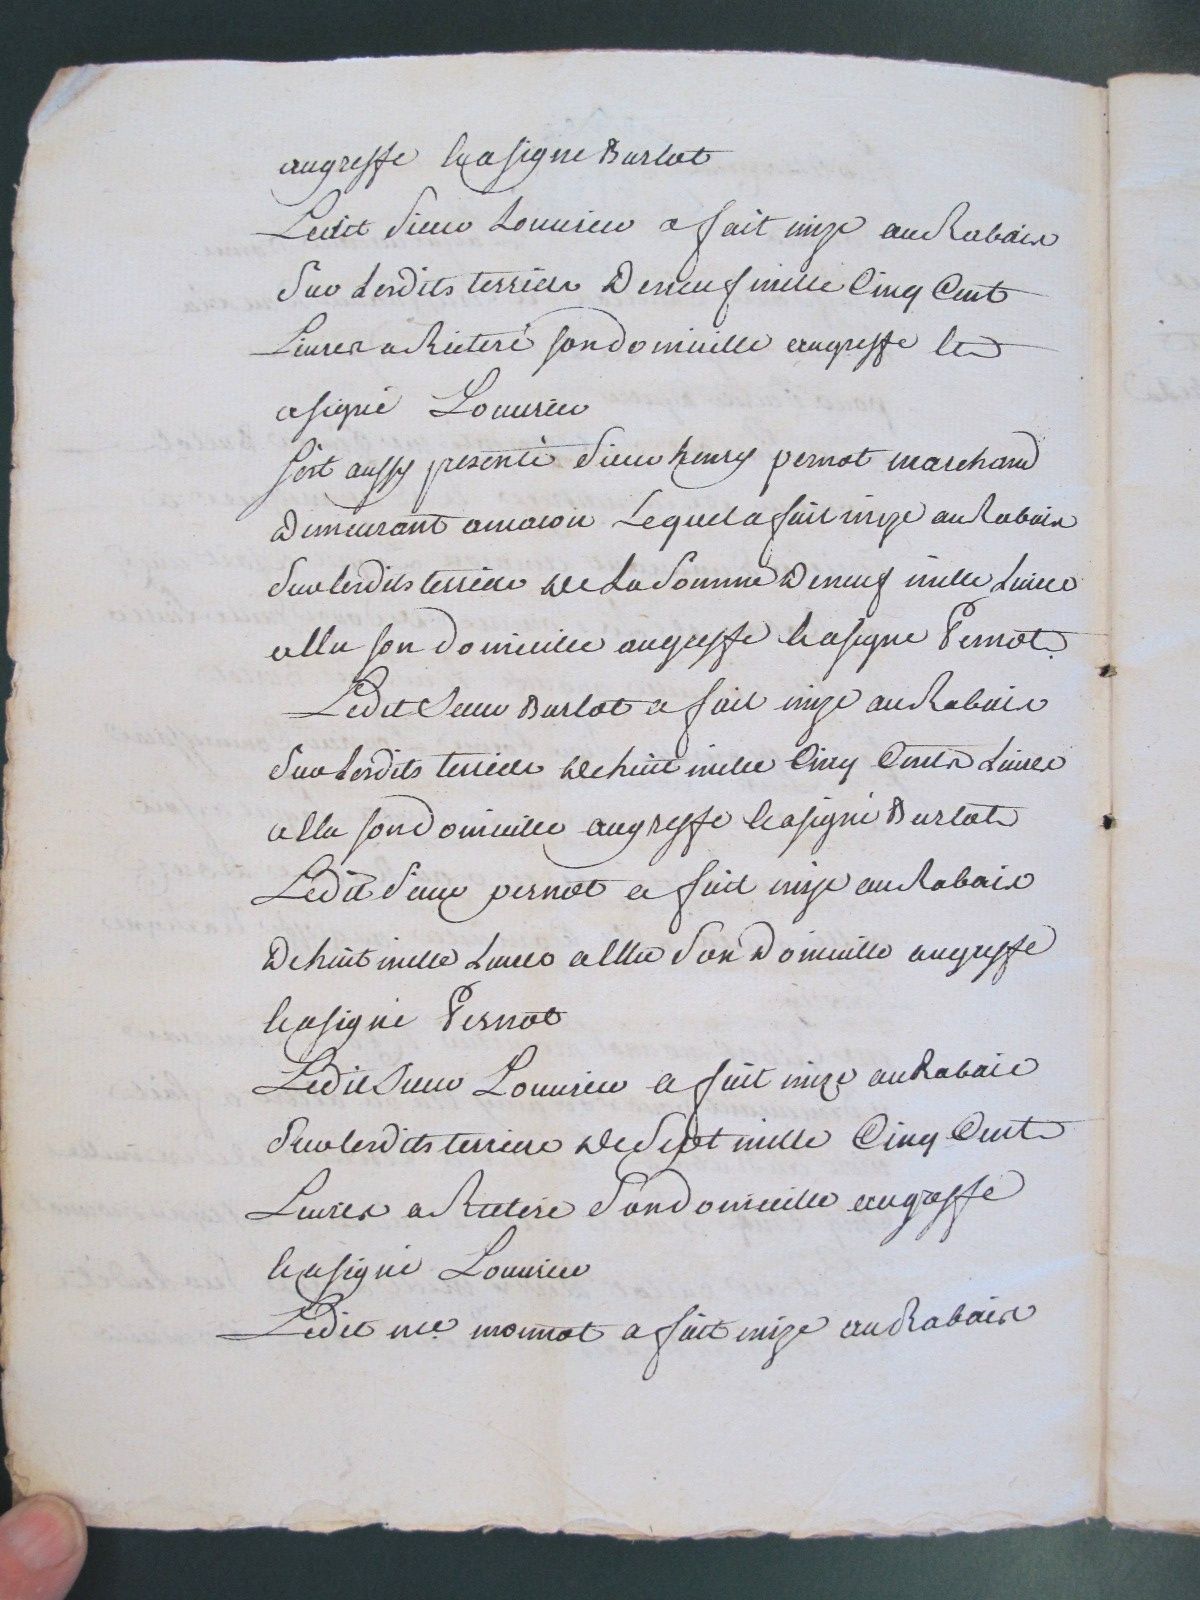 augreffe & a signe Burlot
Ledit Sieur Louvrier a fait mize au Rabaix
Sur Lesdits terriers De neuf mille Cinq Cent
Livres a Reiteré son domicille augreffe &
a signé Louvrier
S'est aussy presenté Sieur henry pernot marchand
Demeurant a macon Lequel a fait mize au Rabaix
Sur Lesdits terriers De La Somme De neuf mille Livres
a Elu son domicille augreffe & a signe Pernot
Ledit Sieur Burlot a fait mize au Rabaix
Sur Lesdits terriers De huit mille Cinq Cents Livres
a Elu son domicille augreffe & a signé Burlot
Ledit Sieur pernot a fait mize au Rabaix
De huit mille Livres a Elu Son Domicille augreffe
& a signé Pernot
Ledit Sieur Louvrier a fait mize au Rabaix
Sur Lesdits terriers De Sept mille Cinq Cent
Livres a Reiteré Son domicille augreffe
& a signé Louvrier
Ledit me. monnot a fait mize au Rabaix